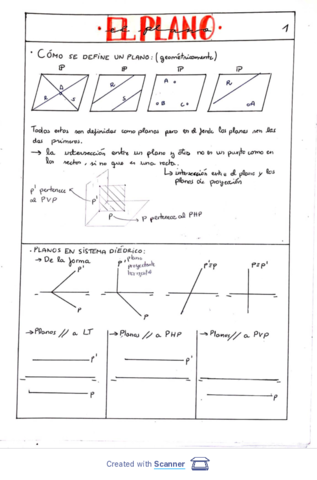 · EL PLANO ·
1
· CÓMO SE DEFINE UN PLANO: (geométricamente)
P P P P
R S R S A B C R A
Todos estos son definidos como planos pero en el fondo los planos son los
dos primeros.
→ La intersección entre un plano y otro no es un punto como en
las rectas, si no que es una recta.
↳ intersección entre el plano y los
planos de proyección
p' pertenece
al PVP
p'
p
p pertenece al PHP
· PLANOS EN SISTEMA DIÉDRICO:
→ De la forma
p'
p
p'
plano
proyectante
p
p'≡p
p≡p'
→ Planos // a LT
→ Planos // a PHP
→ Planos // a PVP
p'
p
p'
p
Created with Scanner